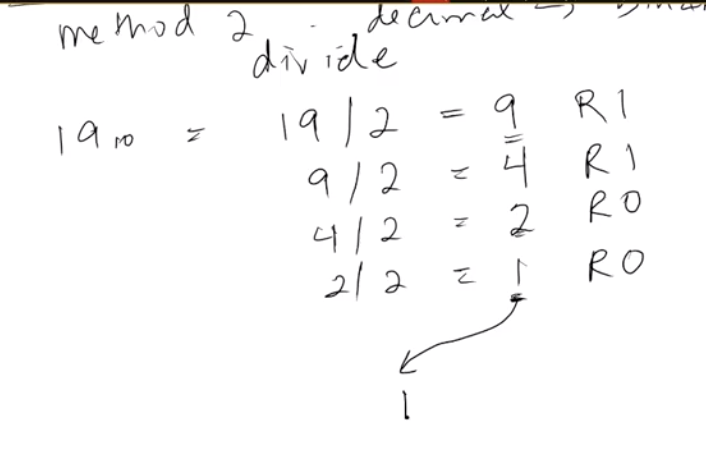 method 2 - decimal →
divide
19₁₀ = 19 / 2 = 9 R1
9 / 2 = 4 R1
4 / 2 = 2 R0
2 / 2 = 1 R0
1